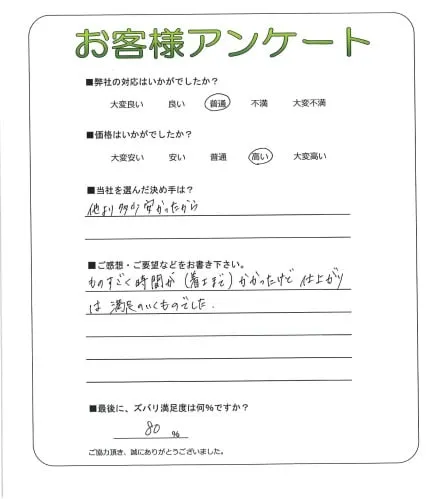 お客様アンケート
■弊社の対応はいかがでしたか？
大変良い 良い 普通 不満 大変不満
■価格はいかがでしたか？
大変安い 安い 普通 高い 大変高い
■当社を選んだ決め手は？
他より多少安かったから
■ご感想・ご要望などをお書き下さい。
ものすごく時間が(着工まで)かかったけど仕上がり
は満足のいくものでした.
■最後に、ズバリ満足度は何％ですか？
80 %
ご協力頂き、誠にありがとうございました。